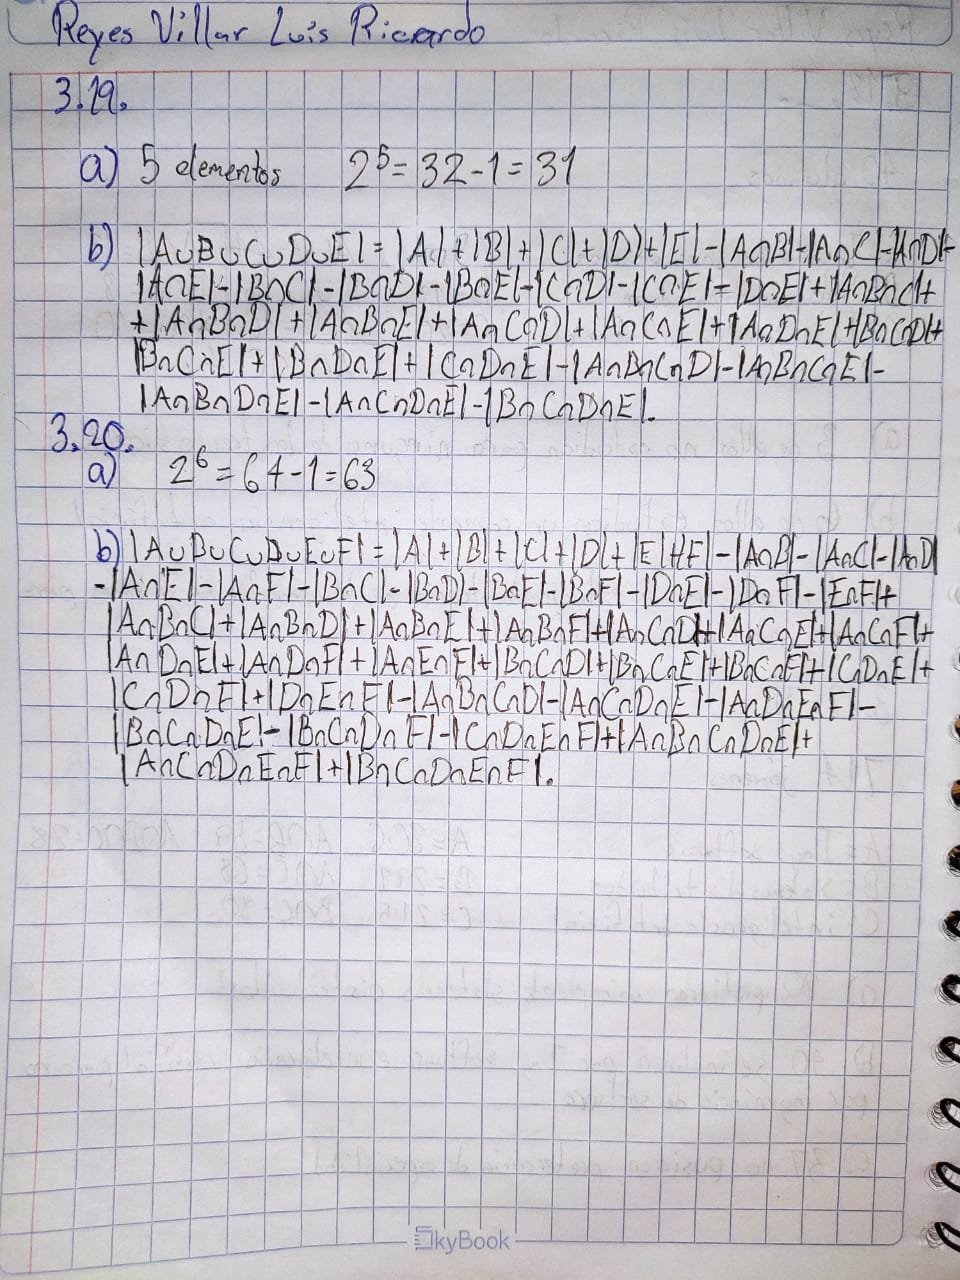 Reyes Villar Luis Ricardo
3.19.
a) 5 elementos 2⁵= 32-1= 31
b) |A∪B∪C∪D∪E| = |A|+|B|+|C|+|D|+|E|-|A∩B|-|A∩C|-|A∩D|-
|A∩E|-|B∩C|-|B∩D|-|B∩E|-|C∩D|-|C∩E|=|D∩E|+|A∩B∩C|+
+|A∩B∩D|+|A∩B∩E|+|A∩C∩D|+|A∩C∩E|+|A∩D∩E|+|B∩C∩D|+
|B∩C∩E|+|B∩D∩E|+|C∩D∩E|-|A∩B∩C∩D|-|A∩B∩C∩E|-
|A∩B∩D∩E|-|A∩C∩D∩E|-|B∩C∩D∩E|.
3.20.
a) 2⁶=64-1=63
b) |A∪B∪C∪D∪E∪F|=|A|+|B|+|C|+|D|+|E|+|F|-|A∩B|-|A∩C|-|A∩D|
-|A∩E|-|A∩F|-|B∩C|-|B∩D|-|B∩E|-|B∩F|-|D∩E|-|D∩F|-|E∩F|+
|A∩B∩C|+|A∩B∩D|+|A∩B∩E|+|A∩B∩F|+|A∩C∩D|+|A∩C∩E|+|A∩C∩F|+
|A∩D∩E|+|A∩D∩F|+|A∩E∩F|+|B∩C∩D|+|B∩C∩E|+|B∩C∩F|+|C∩D∩E|+
|C∩D∩F|+|D∩E∩F|-|A∩B∩C∩D|-|A∩C∩D∩E|-|A∩D∩E∩F|-
|B∩C∩D∩E|-|B∩C∩D∩F|-|C∩D∩E∩F|+|A∩B∩C∩D∩E|+
|A∩C∩D∩E∩F|+|B∩C∩D∩E∩F|.
SkyBook